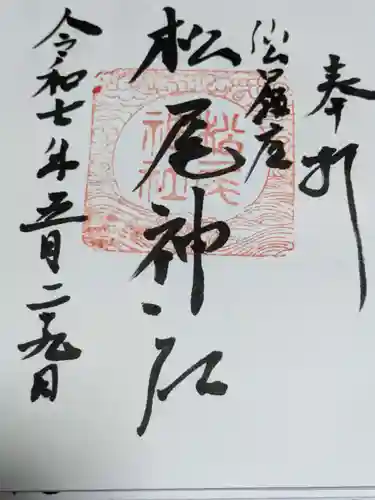 奉拝
松尾神社
松尾神社
令和七年五月二十九日